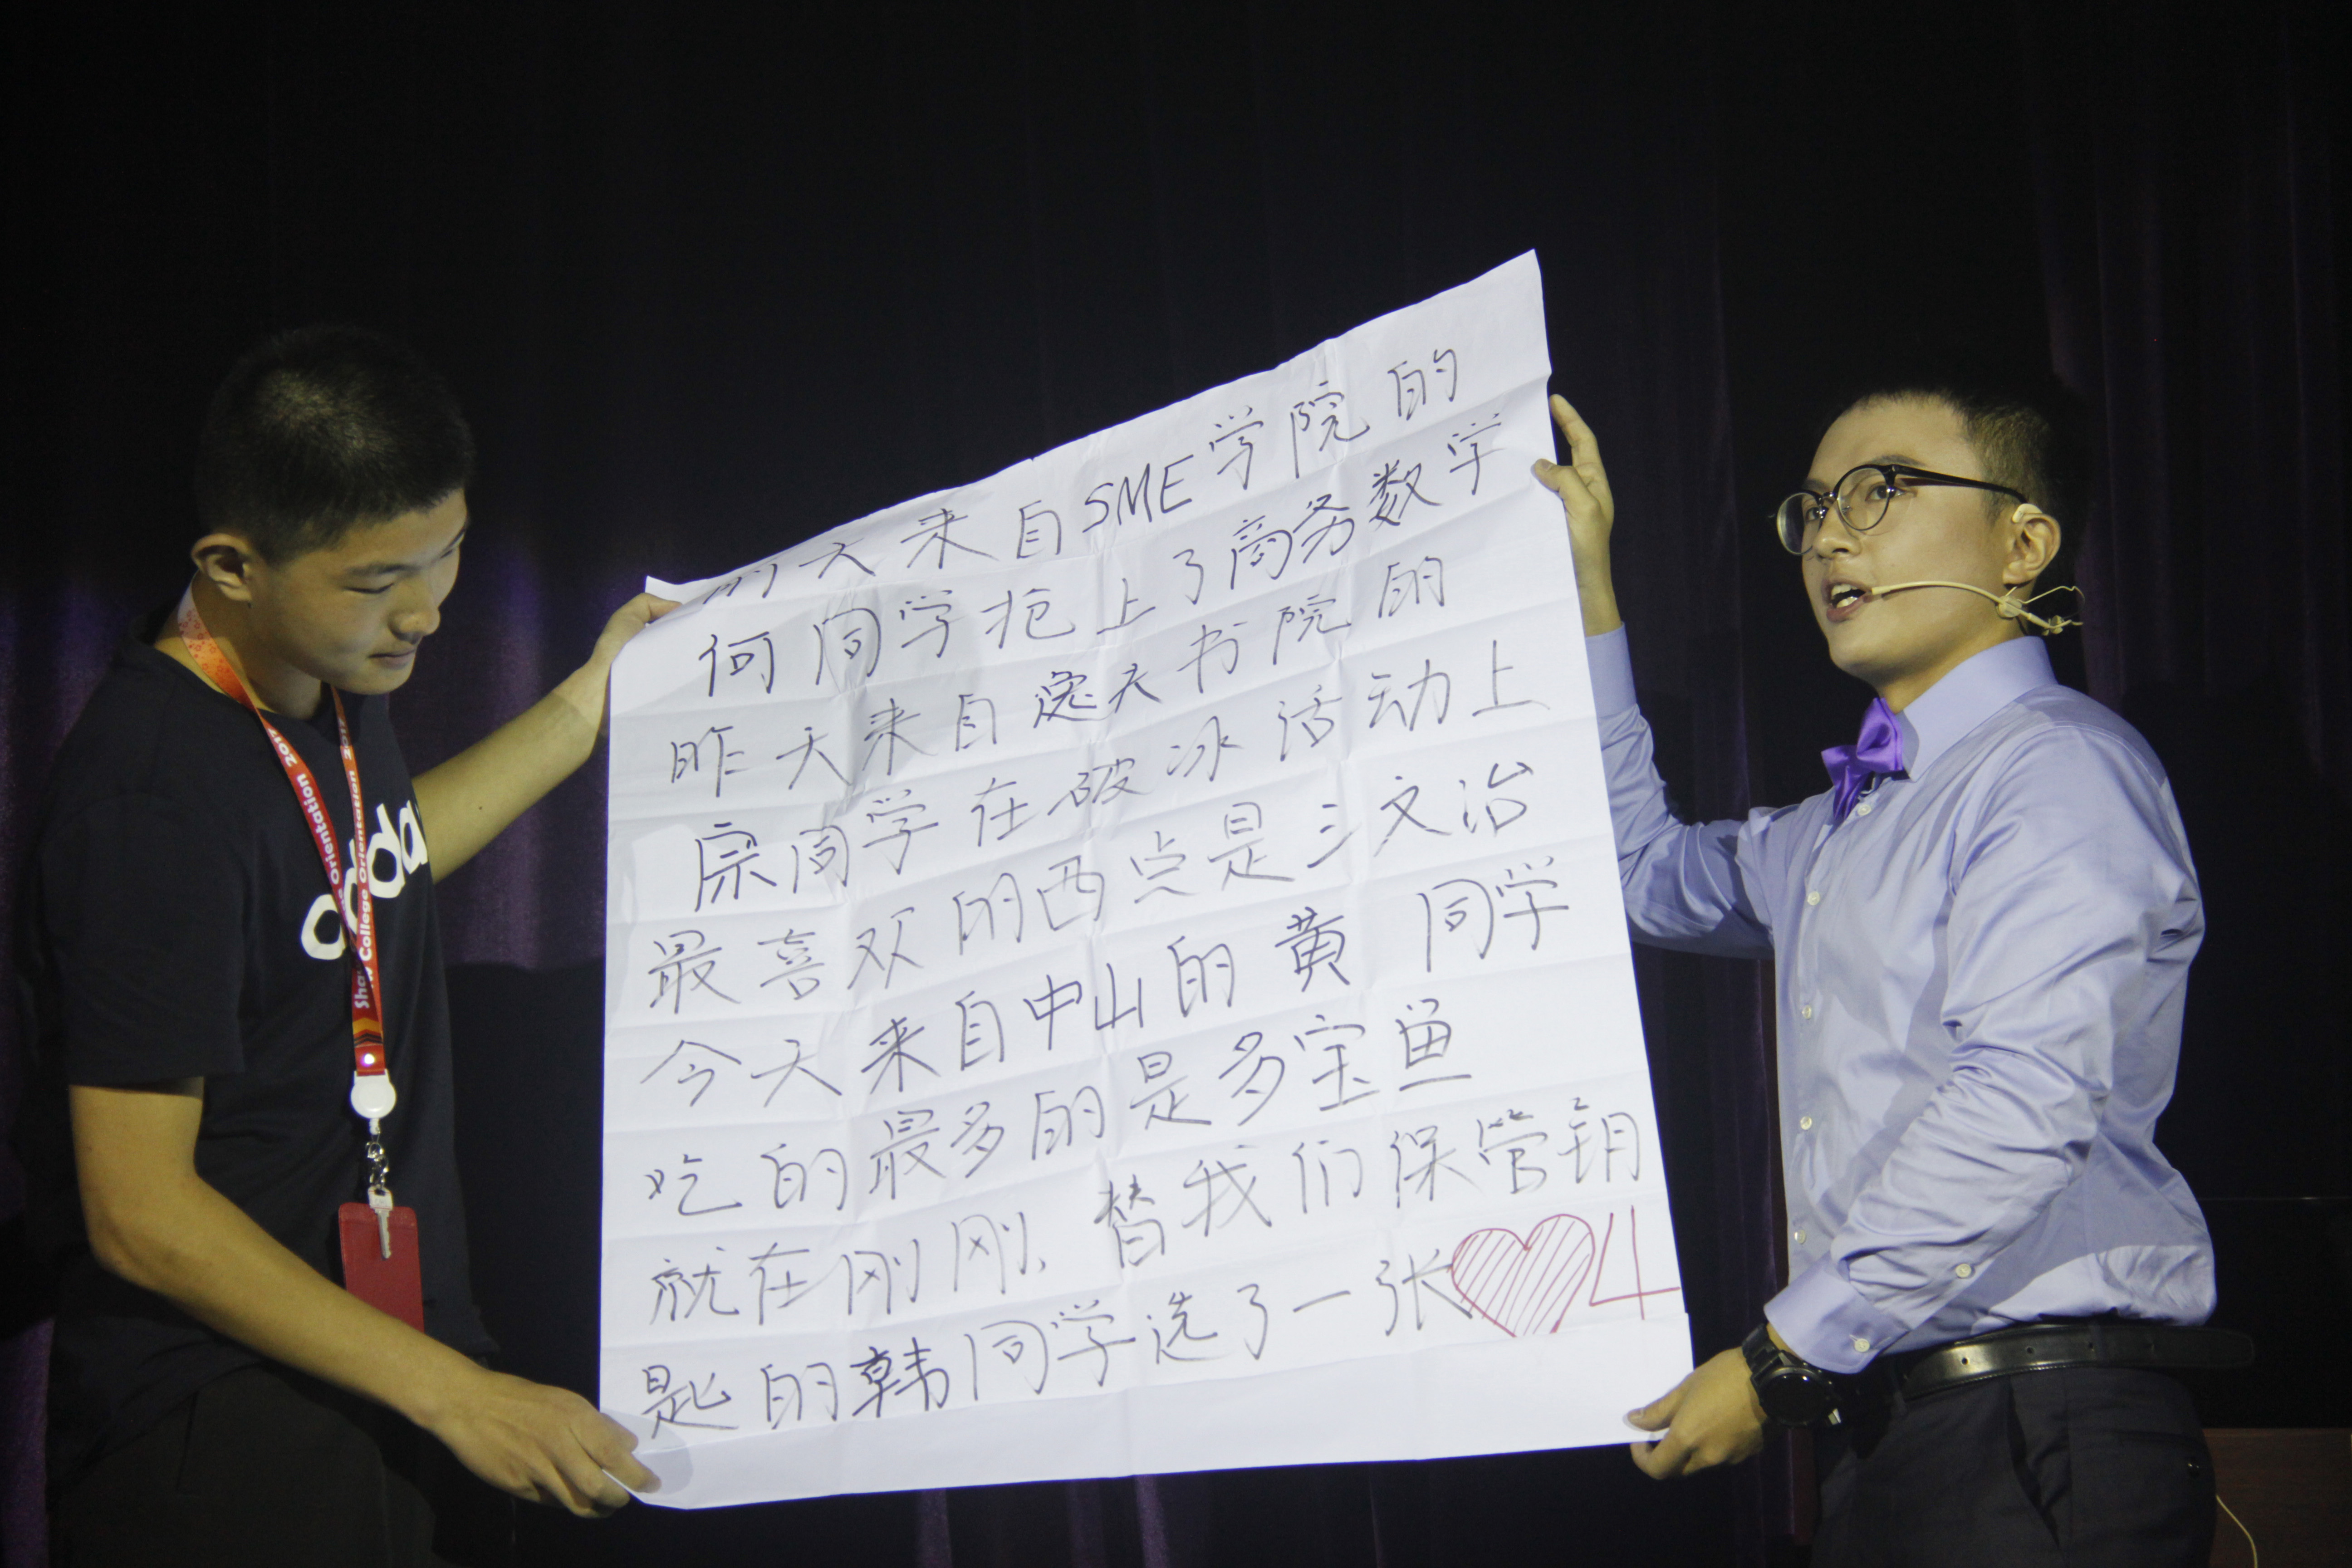 前天来自SME学院的
何同学抢上了商务数学
昨天来自逸夫书院的
宗同学在破冰活动上
最喜欢的西点是三文治
今天来自中山的黄同学
吃的最多的是多宝鱼
就在刚刚、替我们保管钥
匙的韩同学选了一张♥4
Shaw College Orientation 2017
Orientation 2017